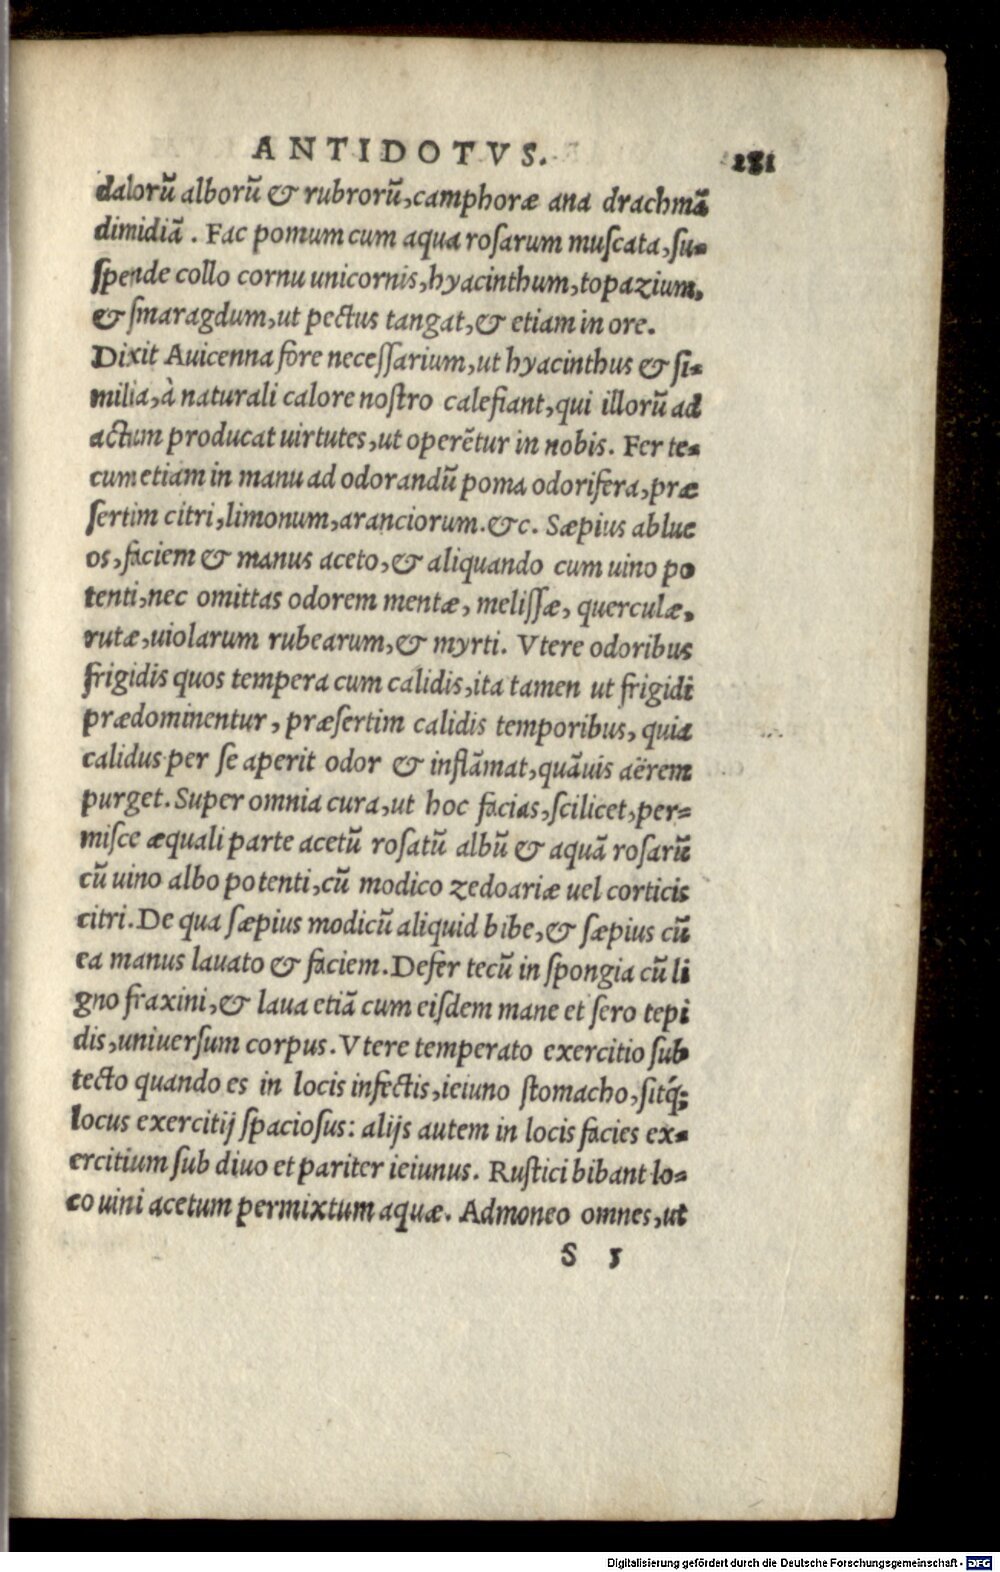 ANTIDOTVS. 281
dalorũ alborũ & rubrorũ, camphoræ ana drachmã
dimidiã. Fac pomum cum aqua rosarum muscata, su-
spende collo cornu unicornis, hyacinthum, topazium,
& smaragdum, ut pectus tangat, & etiam in ore.
Dixit Auicenna fore necessarium, ut hyacinthus & si-
milia, à naturali calore nostro calefiant, qui illorũ ad
actum producat uirtutes, ut operẽtur in nobis. Fer te-
cum etiam in manu ad odorandũ poma odorifera, præ
sertim citri, limonum, aranciorum. &c. Sæpius ablue
os, faciem & manus aceto, & aliquando cum uino po
tenti, nec omittas odorem mentæ, melissæ, querculæ,
rutæ, uiolarum rubearum, & myrti. Vtere odoribus
frigidis quos tempera cum calidis, ita tamen ut frigidi
prædominentur, præsertim calidis temporibus, quia
calidus per se aperit odor & inflãmat, quãuis aërem
purget. Super omnia cura, ut hoc facias, scilicet, per-
misce æquali parte acetũ rosatũ albũ & aquã rosarũ
cũ uino albo potenti, cũ modico zedoariæ uel corticis
citri. De qua sæpius modicũ aliquid bibe, & sæpius cũ
ea manus lauato & faciem. Defer tecũ in spongia cũ li
gno fraxini, & laua etiã cum eisdem mane et sero tepi
dis, uniuersum corpus. Vtere temperato exercitio sub
tecto quando es in locis infectis, ieiuno stomacho, sitq́;
locus exercitij spaciosus: alijs autem in locis facies ex-
ercitium sub diuo et pariter ieiunus. Rustici bibant lo-
co uini acetum permixtum aquæ. Admoneo omnes, ut
S 5
Digitalisierung gefördert durch die Deutsche Forschungsgemeinschaft - DFG